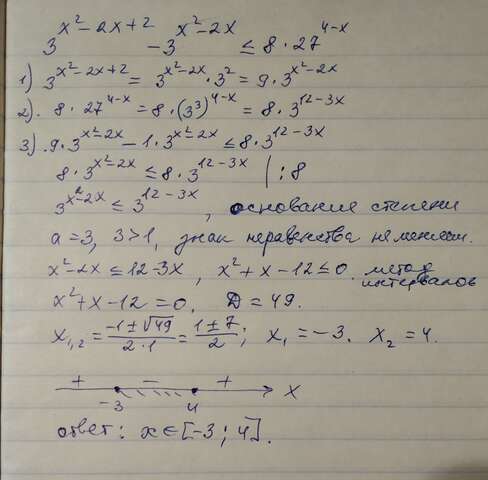 3^{x²-2x+2} - 3^{x²-2x} ≤ 8 · 27^{4-x}
1) 3^{x²-2x+2} = 3^{x²-2x} · 3² = 9 · 3^{x²-2x}
2). 8 · 27^{4-x} = 8 · (3³)^{4-x} = 8 · 3^{12-3x}
3) . 9 · 3^{x²-2x} - 1 · 3^{x²-2x} ≤ 8 · 3^{12-3x}
8 · 3^{x²-2x} ≤ 8 · 3^{12-3x} | : 8
3^{x²-2x} ≤ 3^{12-3x}, основание степени
a = 3, 3 > 1, знак неравенства не меняем.
x² - 2x ≤ 12 - 3x, x² + x - 12 ≤ 0. метод интервалов
x² + x - 12 = 0, D = 49.
x_{1,2} = \frac{-1 ± √49}{2 · 1} = \frac{1 ± 7}{2}; x₁ = -3. x₂ = 4.
+ - + x
-3 4
ответ: x ∈ [-3; 4].